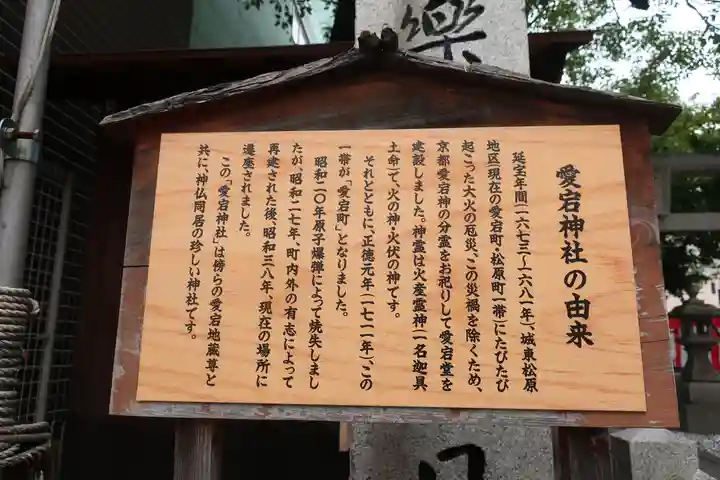 愛宕神社の由来
延宝年間(一六七三〜一六八一年)、城東松原
地区(現在の愛宕町・松原町一帯)にたびたび
起こった大火の厄災、この災禍を除くため、
京都愛宕神の分霊をお祀りして愛宕堂を
建設しました。神霊は火産霊神(一名迦具
土命)て、火の神・火伏の神です。
それとともに、正徳元年(一七一一年)この
一帯が「愛宕町」となりました。
昭和二〇年原子爆弾によって焼失しまし
たが、昭和二七年、町内外の有志によって
再建された後、昭和三八年、現在の場所に
遷座されました。
この「愛宕神社」は傍らの愛宕地蔵尊と
共に、神仏同居の珍しい神社です。
樂